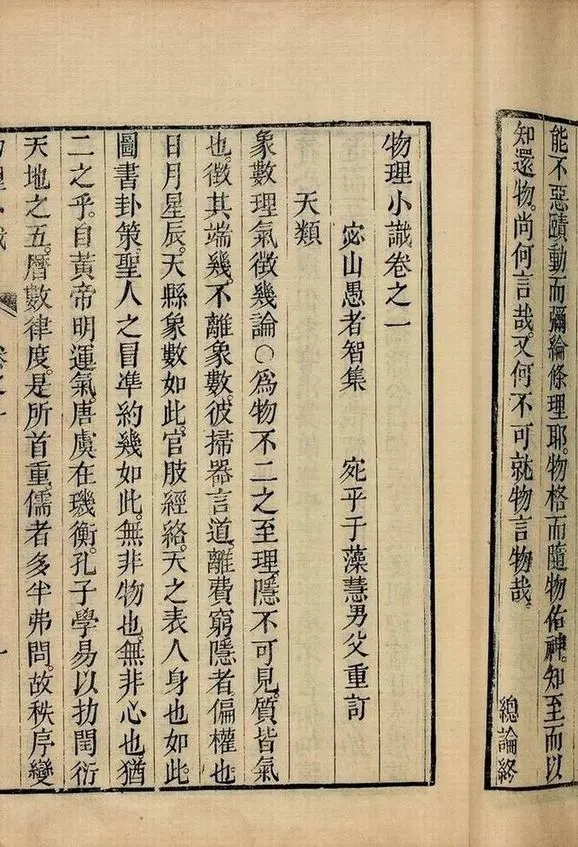 能不惡賾動而彌綸條理耶。物格而隨物佑神。知至而以
知還物。尚何言哉。又何不可就物言物哉。
總論終
物理小識卷之一
宓山愚者智集　宛平于藻慧男父重訂
天類
象數理氣徵幾論○爲物不二之至理。隱不可見。質皆氣
也。徵其端幾。不離象數。彼掃器言道。離費窮隱者偏權也
日月星辰。天縣象數如此。官肢經絡。天之表人身也如此。
圖書卦策。聖人之冒凖約幾如此。無非物也。無非心也猶
二之乎。自黃帝明運氣。唐虞在璣衡。孔子學易以扐閏衍
天地之五。曆數律度。是所首重。儒者多半弗問。故秩序變